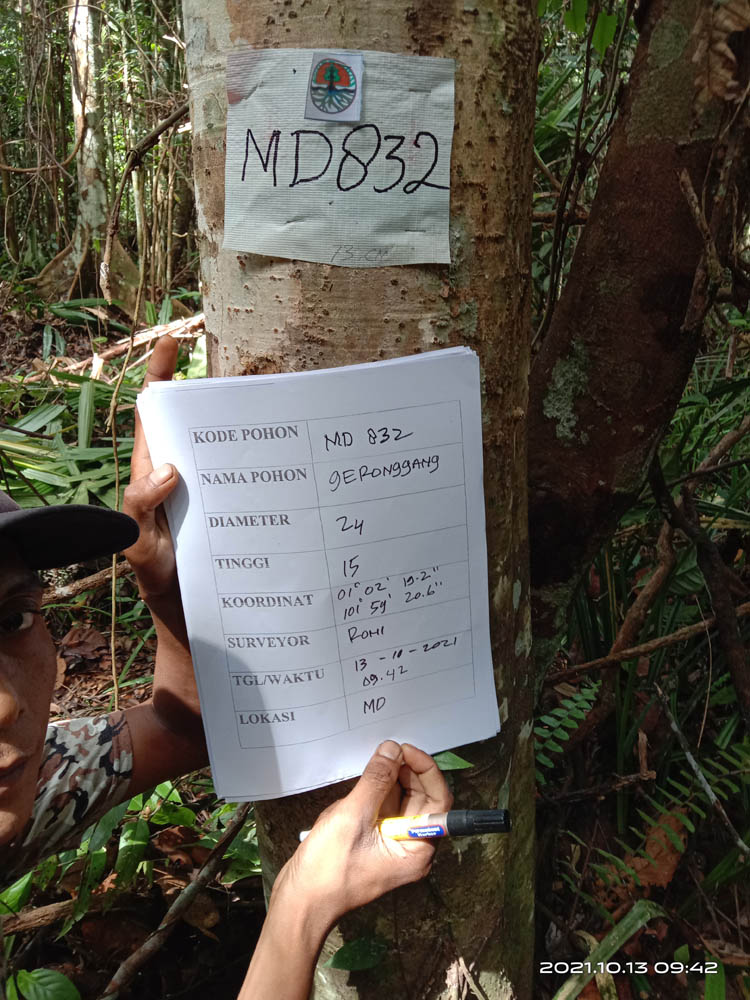 MD832
13 cm
KODE POHON MD 832
NAMA POHON GERONGGANG
DIAMETER 24
TINGGI 15
KOORDINAT 01° 02' 19.2"
101° 59' 20.6"
SURVEYOR ROMI
TGL/WAKTU 13 - 10 - 2021
09.42
LOKASI MD
Permanent
Marker
2021.10.13 09:42